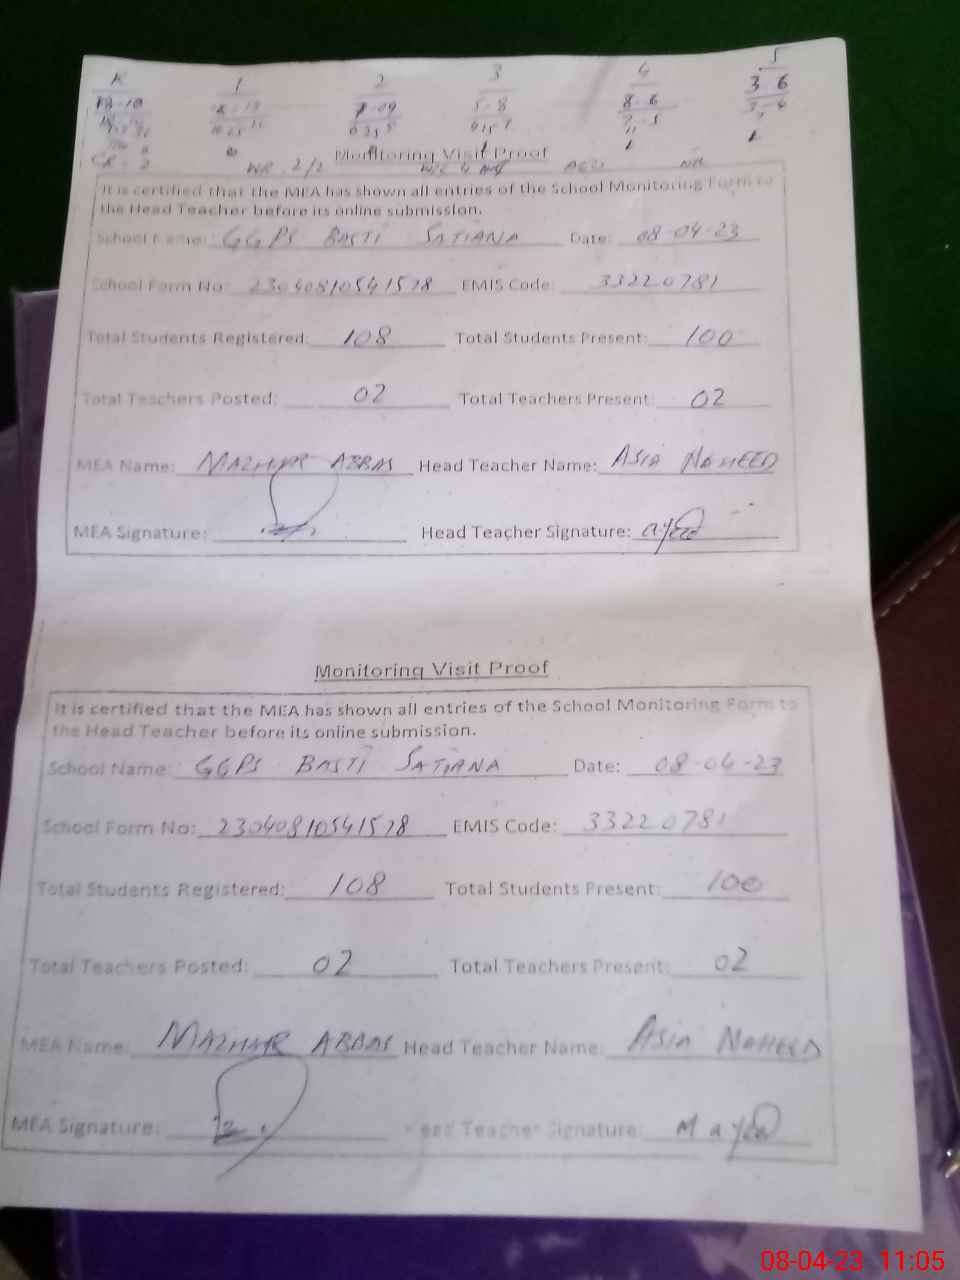 K 1 2 3 4 5
8-6 3 6
WR 2/2
Monitoring Visit Proof
It is certified that the MEA has shown all entries of the School Monitoring Form to
the Head Teacher before its online submission.
School Name: GGPS BASTI SATIANA Date: 08-04-23
School Form No: 23040810541578 EMIS Code: 33220781
Total Students Registered: 108 Total Students Present: 100
Total Teachers Posted: 02 Total Teachers Present: 02
MEA Name: MAZHAR ABBAS Head Teacher Name: ASIA NAHEED
MEA Signature: Head Teacher Signature:
Monitoring Visit Proof
It is certified that the MEA has shown all entries of the School Monitoring Form to
the Head Teacher before its online submission.
School Name: GGPS BASTI SATIANA Date: 08-04-23
School Form No: 23040810541578 EMIS Code: 33220781
Total Students Registered: 108 Total Students Present: 100
Total Teachers Posted: 02 Total Teachers Present: 02
MEA Name: MAZHAR ABBAS Head Teacher Name: ASIA NAHEED
MEA Signature: Head Teacher Signature:
08-04-23 11:05